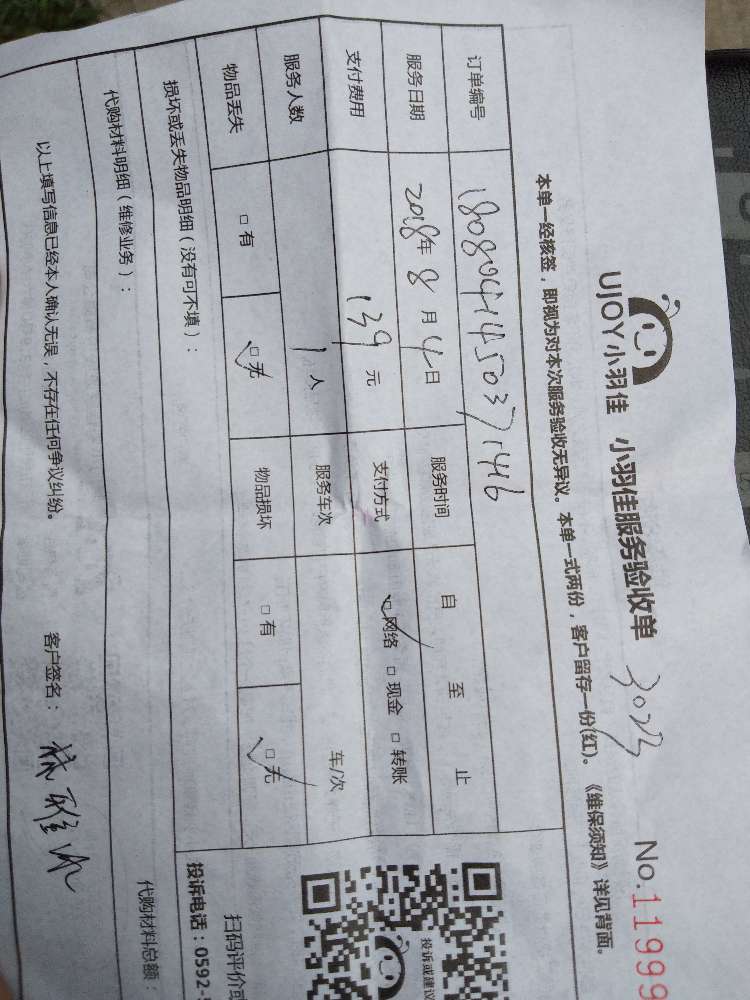 UJOY小羽佳 小羽佳服务验收单 3023 No.11999
本单一经核签，即视为对本次服务验收无异议。本单一式两份，客户留存一份(红)。《维保须知》详见背面。
订单编号
服务日期 2018年 8月 4日 服务时间 自 至 止
支付费用 139元 支付方式 网络 现金 转账
服务人数 1人 服务车次 车/次
物品丢失 有 无 物品损坏 有 无
损坏或丢失物品明细（没有可不填）：
代购材料明细（维修业务）： 代购材料总额：
以上填写信息已经本人确认无误，不存在任何争议纠纷。 客户签名：
投诉或建议
扫码评价或
投诉电话：0592-